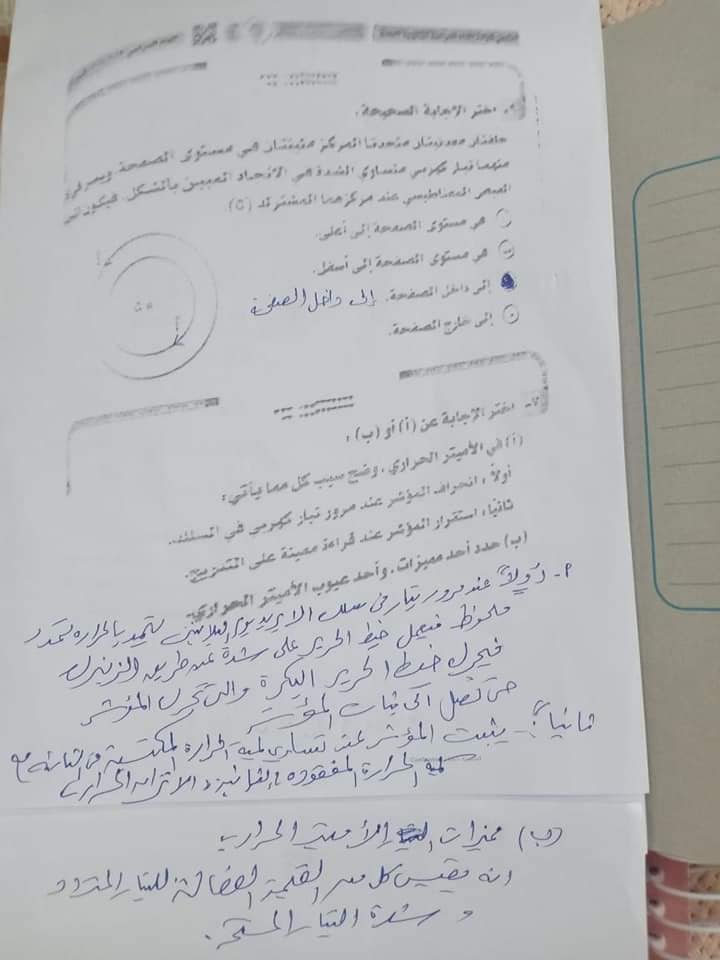 اختر الإجابة الصحيحة:
حلقتان معدنيتان متحدتا المركز مثبتتان في مستوى الصفحة ويمر في
منهما تيار كهربي متساوي الشدة في الاتجاه المبين بالشكل، فيكون اتجاه
الفيض المغناطيسي عند مركزهما المشترك (C).
في مستوى الصفحة إلى أعلى.
في مستوى الصفحة إلى أسفل.
إلى داخل الصفحة. إلى داخل الصفحة
إلى خارج الصفحة.
٧- اختر الإجابة عن (أ) أو (ب):
(أ) في الأميتر الحراري، وضح سبب كل مما يأتي:
أولاً: انحراف المؤشر عند مرور تيار كهربي في السلك.
ثانيًا: استقرار المؤشر عند قراءة معينة على التدريج.
(ب) حدد أحد مميزات، وأحد عيوب الأميتر الحراري.
٢- أولاً عند مرور تيار في سلك الايريديوم البلاتيني يتمدد بالحراره تمدد
ملحوظ فيعمل خيط الحرير على شدة عن طريق الزنبرك
فيحرك خيط الحرير البكرة والتى تحرك المؤشر
حتى تصل الى ثبات المؤشر
ثانياً:- يثبت المؤشر عند تساوي كمية الحرارة المكتسبة فى الثانيه مع
كمية الحرارة المفقوده الاتزان الحراري
(ب) مميزات الأميتر الحراري
انه يقيس كل من القيمة الفعالة للتيار المتردد
و شدة التيار المستمر.